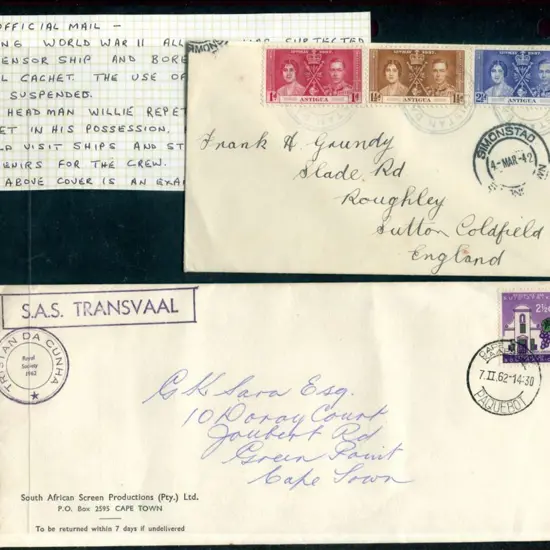 OFFICIAL MAIL -
WORLD WAR II ALL
CENSOR SHIP AND BORE
CACHET. THE USE OF
SUSPENDED.
HEADMAN WILLIE REPET
IN HIS POSSESSION.
VISIT SHIPS AND
FOR THE CREW.
ABOVE COVER IS AN
1d ANTIGUA 1d
1½d ANTIGUA 1½d
ANTIGUA
SIMONSTAD
4-MAR-42
Frank H Grundy
Slade Rd
Roughley
Sutton Coldfield
England
S.A.S. TRANSVAAL
TRISTAN DA CUNHA
Royal
Society
1962
2½
7.II.62-14-30
PAQUEBOT
G K Sara Esq.
10 Doray Court
Joubert Rd
Green Point
Cape Town
South African Screen Productions (Pty.) Ltd.
P.O. Box 2595 CAPE TOWN
To be returned within 7 days if undelivered